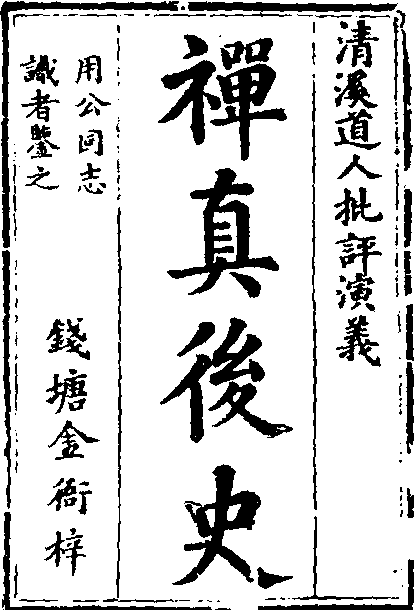 清溪道人批評演義
禪真後史
用公同志
識者鑒之
錢塘金衙梓